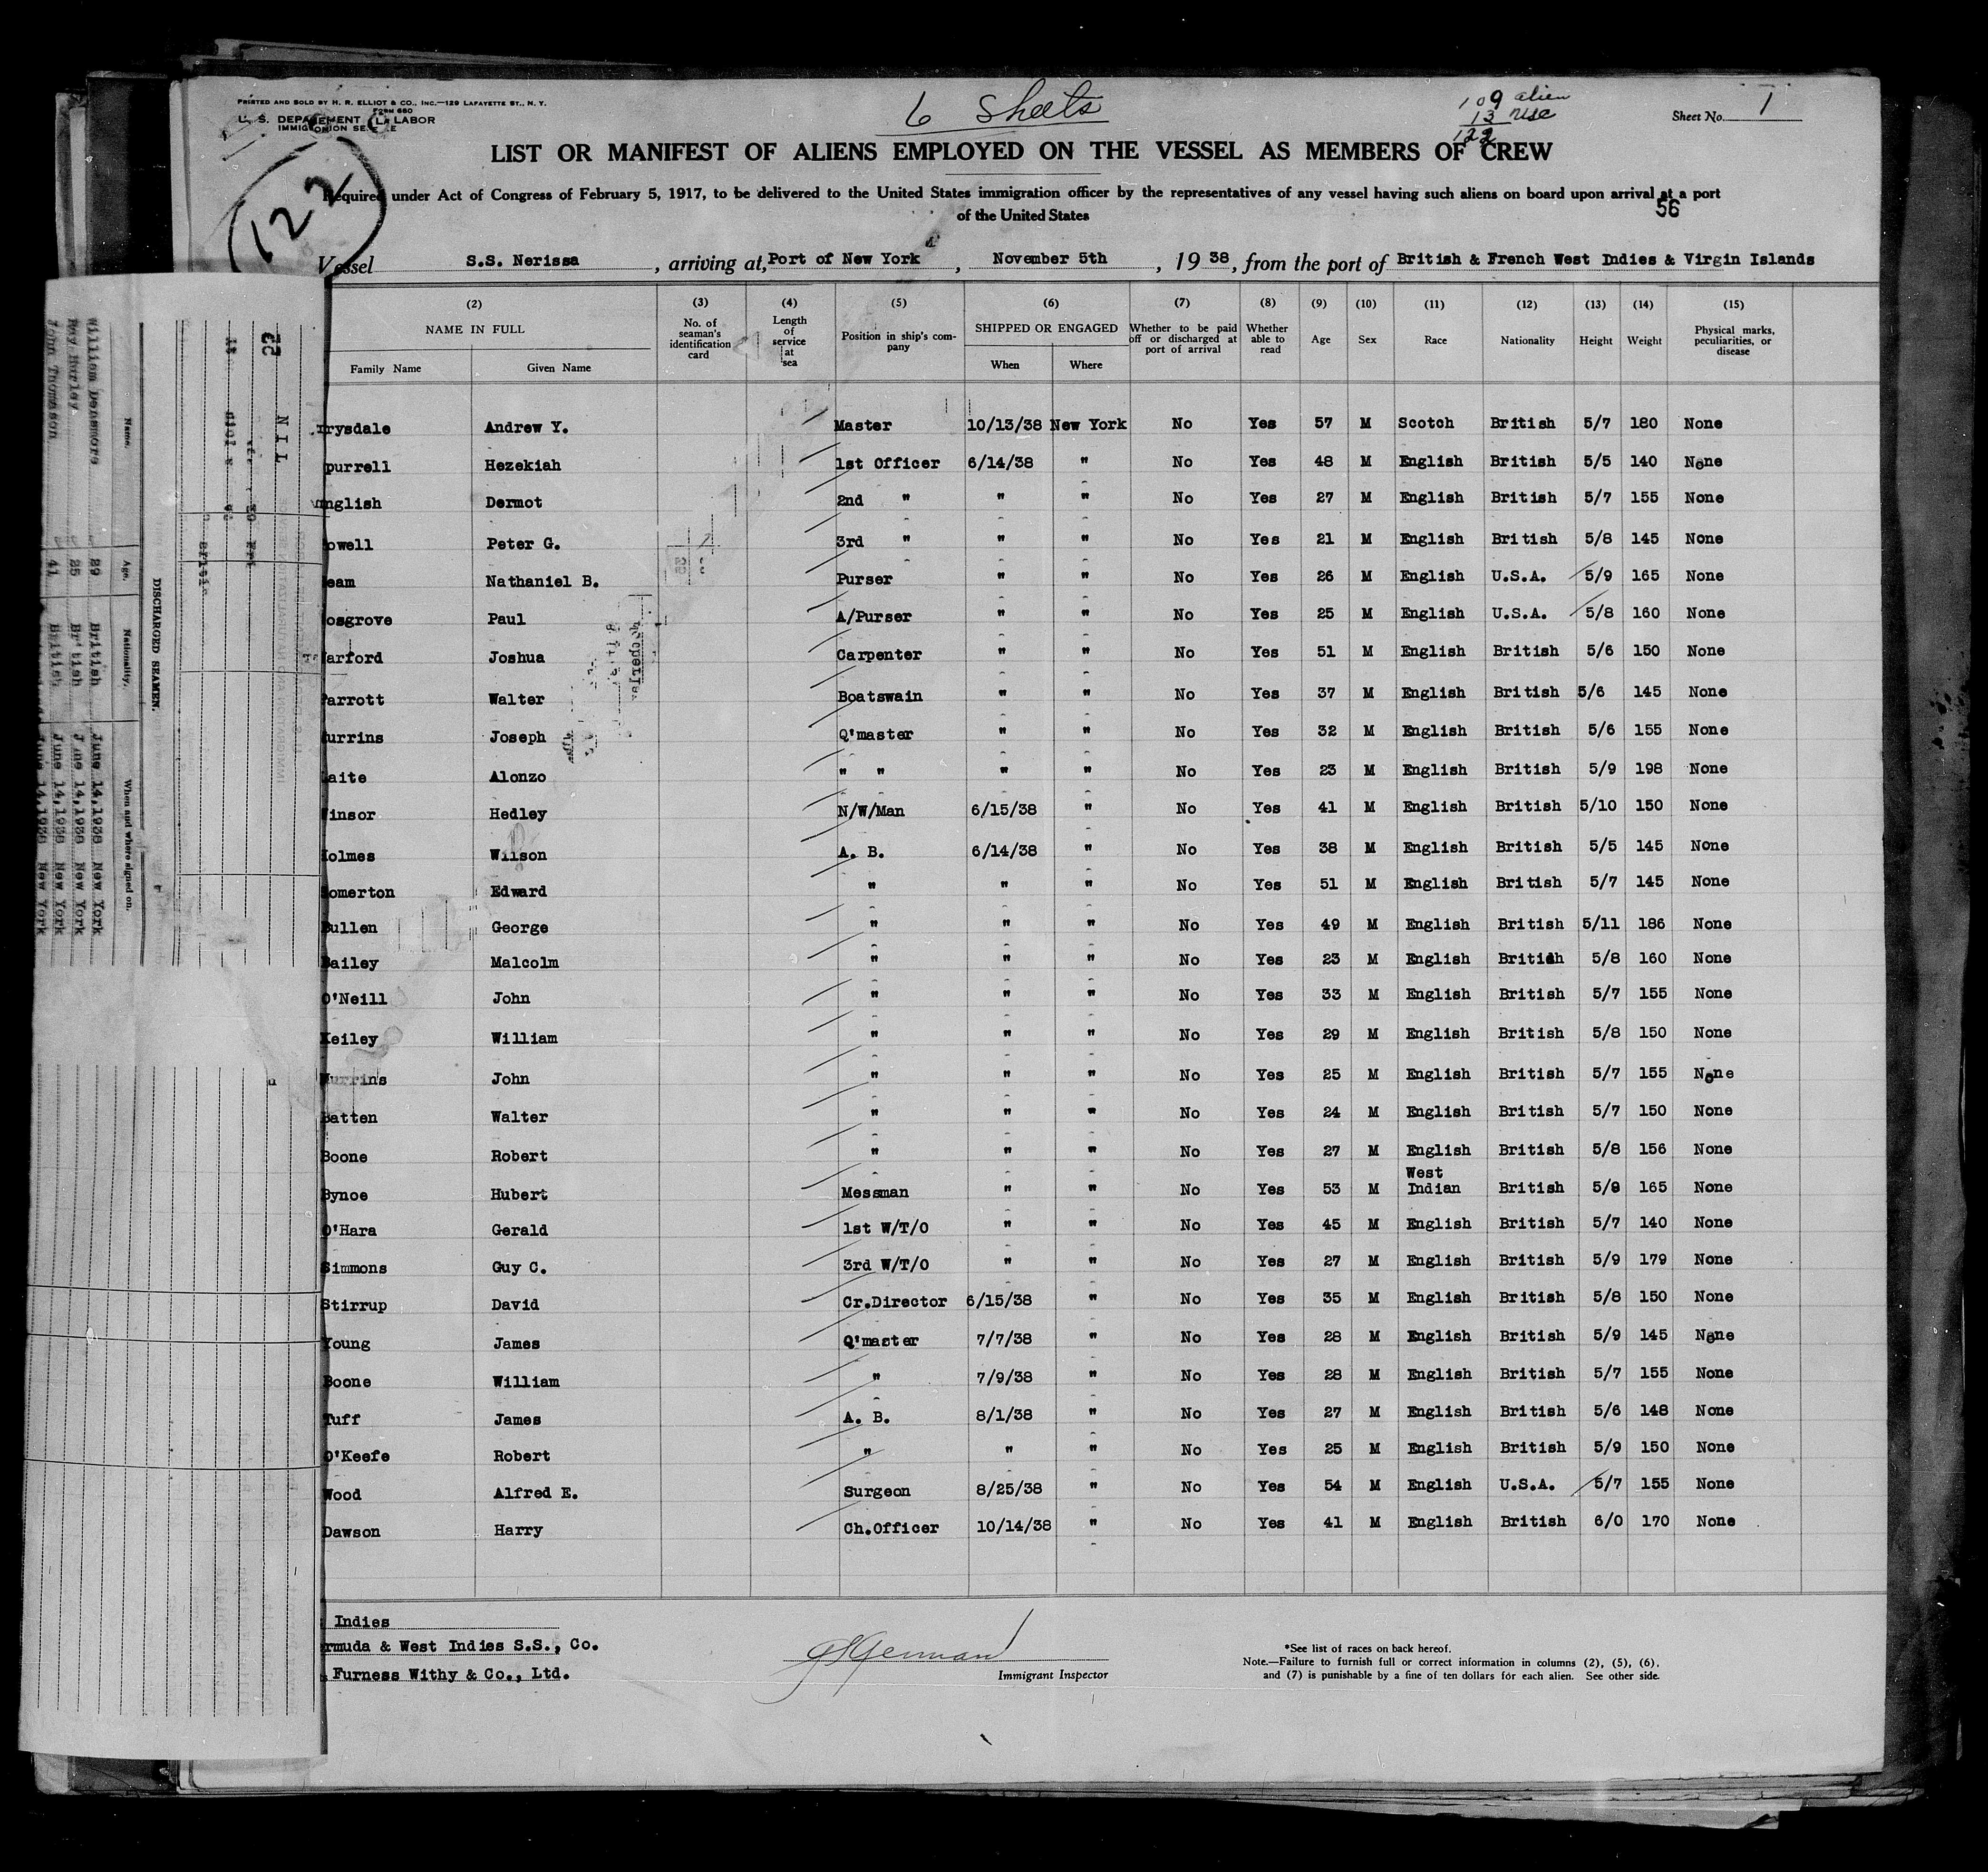 PRINTED AND SOLD BY H. R. ELLIOT & CO., INC.—129 LAFAYETTE ST., N. Y.
FORM 660
U. S. DEPARTMENT OF LABOR
IMMIGRATION SERVICE
6 Sheets
109 alien
13 USC
122
Sheet No. 1
122
LIST OR MANIFEST OF ALIENS EMPLOYED ON THE VESSEL AS MEMBERS OF CREW
Required under Act of Congress of February 5, 1917, to be delivered to the United States immigration officer by the representatives of any vessel having such aliens on board upon arrival at a port
of the United States
56
Vessel S.S. Nerissa, arriving at, Port of New York, November 5th, 1938, from the port of British & French West Indies & Virgin Islands
(2) (3) (4) (5) (6) (7) (8) (9) (10) (11) (12) (13) (14) (15)
NAME IN FULL No. of seaman's identification card Length of service at sea Position in ship's company SHIPPED OR ENGAGED Whether to be paid off or discharged at port of arrival Whether able to read Age Sex Race Nationality Height Weight Physical marks, peculiarities, or disease
Family Name Given Name When Where
rysdale Andrew Y. Master 10/13/38 New York No Yes 57 M Scotch British 5/7 180 None
purrell Hezekiah 1st Officer 6/14/38 " No Yes 48 M English British 5/5 140 None
nglish Dermot 2nd " " " No Yes 27 M English British 5/7 155 None
owell Peter G. 3rd " " " No Yes 21 M English British 5/8 145 None
eam Nathaniel B. Purser " " No Yes 26 M English U.S.A. 5/9 165 None
osgrove Paul A/Purser " " No Yes 25 M English U.S.A. 5/8 160 None
arford Joshua Carpenter " " No Yes 51 M English British 5/6 150 None
arrott Walter Boatswain " " No Yes 37 M English British 5/6 145 None
urrins Joseph Q'master " " No Yes 32 M English British 5/6 155 None
aite Alonzo " " " " No Yes 23 M English British 5/9 198 None
Winsor Hedley N/W/Man 6/15/38 " No Yes 41 M English British 5/10 150 None
Holmes Wilson A. B. 6/14/38 " No Yes 38 M English British 5/5 145 None
Somerton Edward " " " No Yes 51 M English British 5/7 145 None
Bullen George " " " No Yes 49 M English British 5/11 186 None
Bailey Malcolm " " " No Yes 23 M English British 5/8 160 None
O'Neill John " " " No Yes 33 M English British 5/7 155 None
Keiley William " " " No Yes 29 M English British 5/8 150 None
Murrins John " " " No Yes 25 M English British 5/7 155 None
Batten Walter " " " No Yes 24 M English British 5/7 150 None
Boone Robert " " " No Yes 27 M English British 5/8 156 None
Bynoe Hubert Messman " " No Yes 53 M West Indian British 5/8 165 None
O'Hara Gerald 1st W/T/O " " No Yes 45 M English British 5/7 140 None
Simmons Guy C. 3rd W/T/O " " No Yes 27 M English British 5/9 179 None
Stirrup David Cr.Director 6/15/38 " No Yes 35 M English British 5/8 150 None
Young James Q'master 7/7/38 " No Yes 28 M English British 5/9 145 None
Boone William " 7/9/38 " No Yes 28 M English British 5/7 155 None
Tuff James A. B. 8/1/38 " No Yes 27 M English British 5/6 148 None
O'Keefe Robert " " " No Yes 25 M English British 5/9 150 None
Wood Alfred E. Surgeon 8/25/38 " No Yes 54 M English U.S.A. 5/7 155 None
Dawson Harry Ch.Officer 10/14/38 " No Yes 41 M English British 6/0 170 None
Indies
rmuda & West Indies S.S., Co.
Furness Withy & Co., Ltd.
Immigrant Inspector
*See list of races on back hereof.
Note.—Failure to furnish full or correct information in columns (2), (5), (6),
and (7) is punishable by a fine of ten dollars for each alien. See other side.
DISCHARGED SEAMEN.
Name. Age. Nationality. When and where signed on.
William Densmore 29 British June 14,1938 New York
Roy Hurley 25 British June 14,1938 New York
John Thomasson 41 British June 14,1938 New York
NIL
22